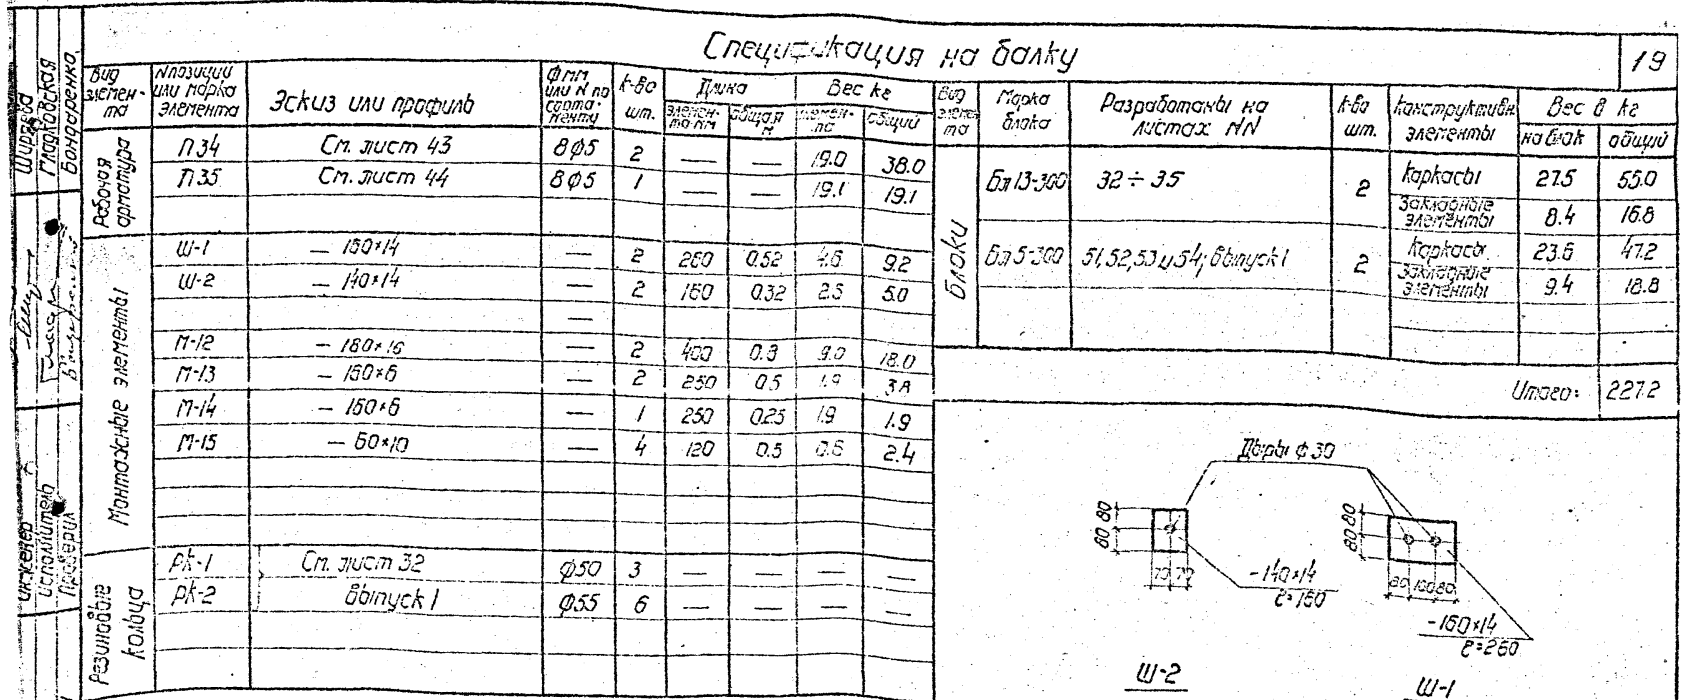 Спецификация на балку
19
Вид элемен-та
N позиции или марка элемента
Эскиз или профиль
ф мм или N по сорта-менту
к-во шт.
Длина
элемен-та мм
общая м
Вес кг
элемен-та
общий
Рабочая арматура
П34 См. лист 43 8ф5 2 — — 19.0 38.0
П35 См. лист 44 8ф5 1 — — 19.1 19.1
Монтажные элементы
Ш-1 — 160×14 — 2 260 0.52 4.6 9.2
Ш-2 — 140×14 — 2 160 0.32 2.5 5.0
—
М-12 — 180×16 — 2 400 0.8 9.0 18.0
М-13 — 160×6 — 2 250 0.5 1.9 3.8
М-14 — 160×6 — 1 250 0.25 1.9 1.9
М-15 — 60×10 — 4 120 0.5 0.6 2.4
Резиновые кольца
РК-1 См. лист 32 ф50 3 — — — —
РК-2 Выпуск 1 ф55 6 — — — —
Вид элемен та
Марка блока
Разработаны на листах NN
к-во шт.
Конструктивн. элементы
Вес в кг
на блок
общий
Блоки
Бл 13-300 32 ÷ 35 2 Каркасы 27.5 55.0
Закладные элементы 8.4 16.8
Бл 5-300 51,52,53 и 54; Выпуск 1 2 Каркасы 23.6 47.2
Закладные элементы 9.4 18.8
Итого: 227.2
Дыры ф 30
80 80
70 70
-140×14
ℓ=160
Ш-2
80 80
80 100 80
-160×14
ℓ=260
Ш-1
Гладковская
Бондаренко
Исполнитель
Проверил